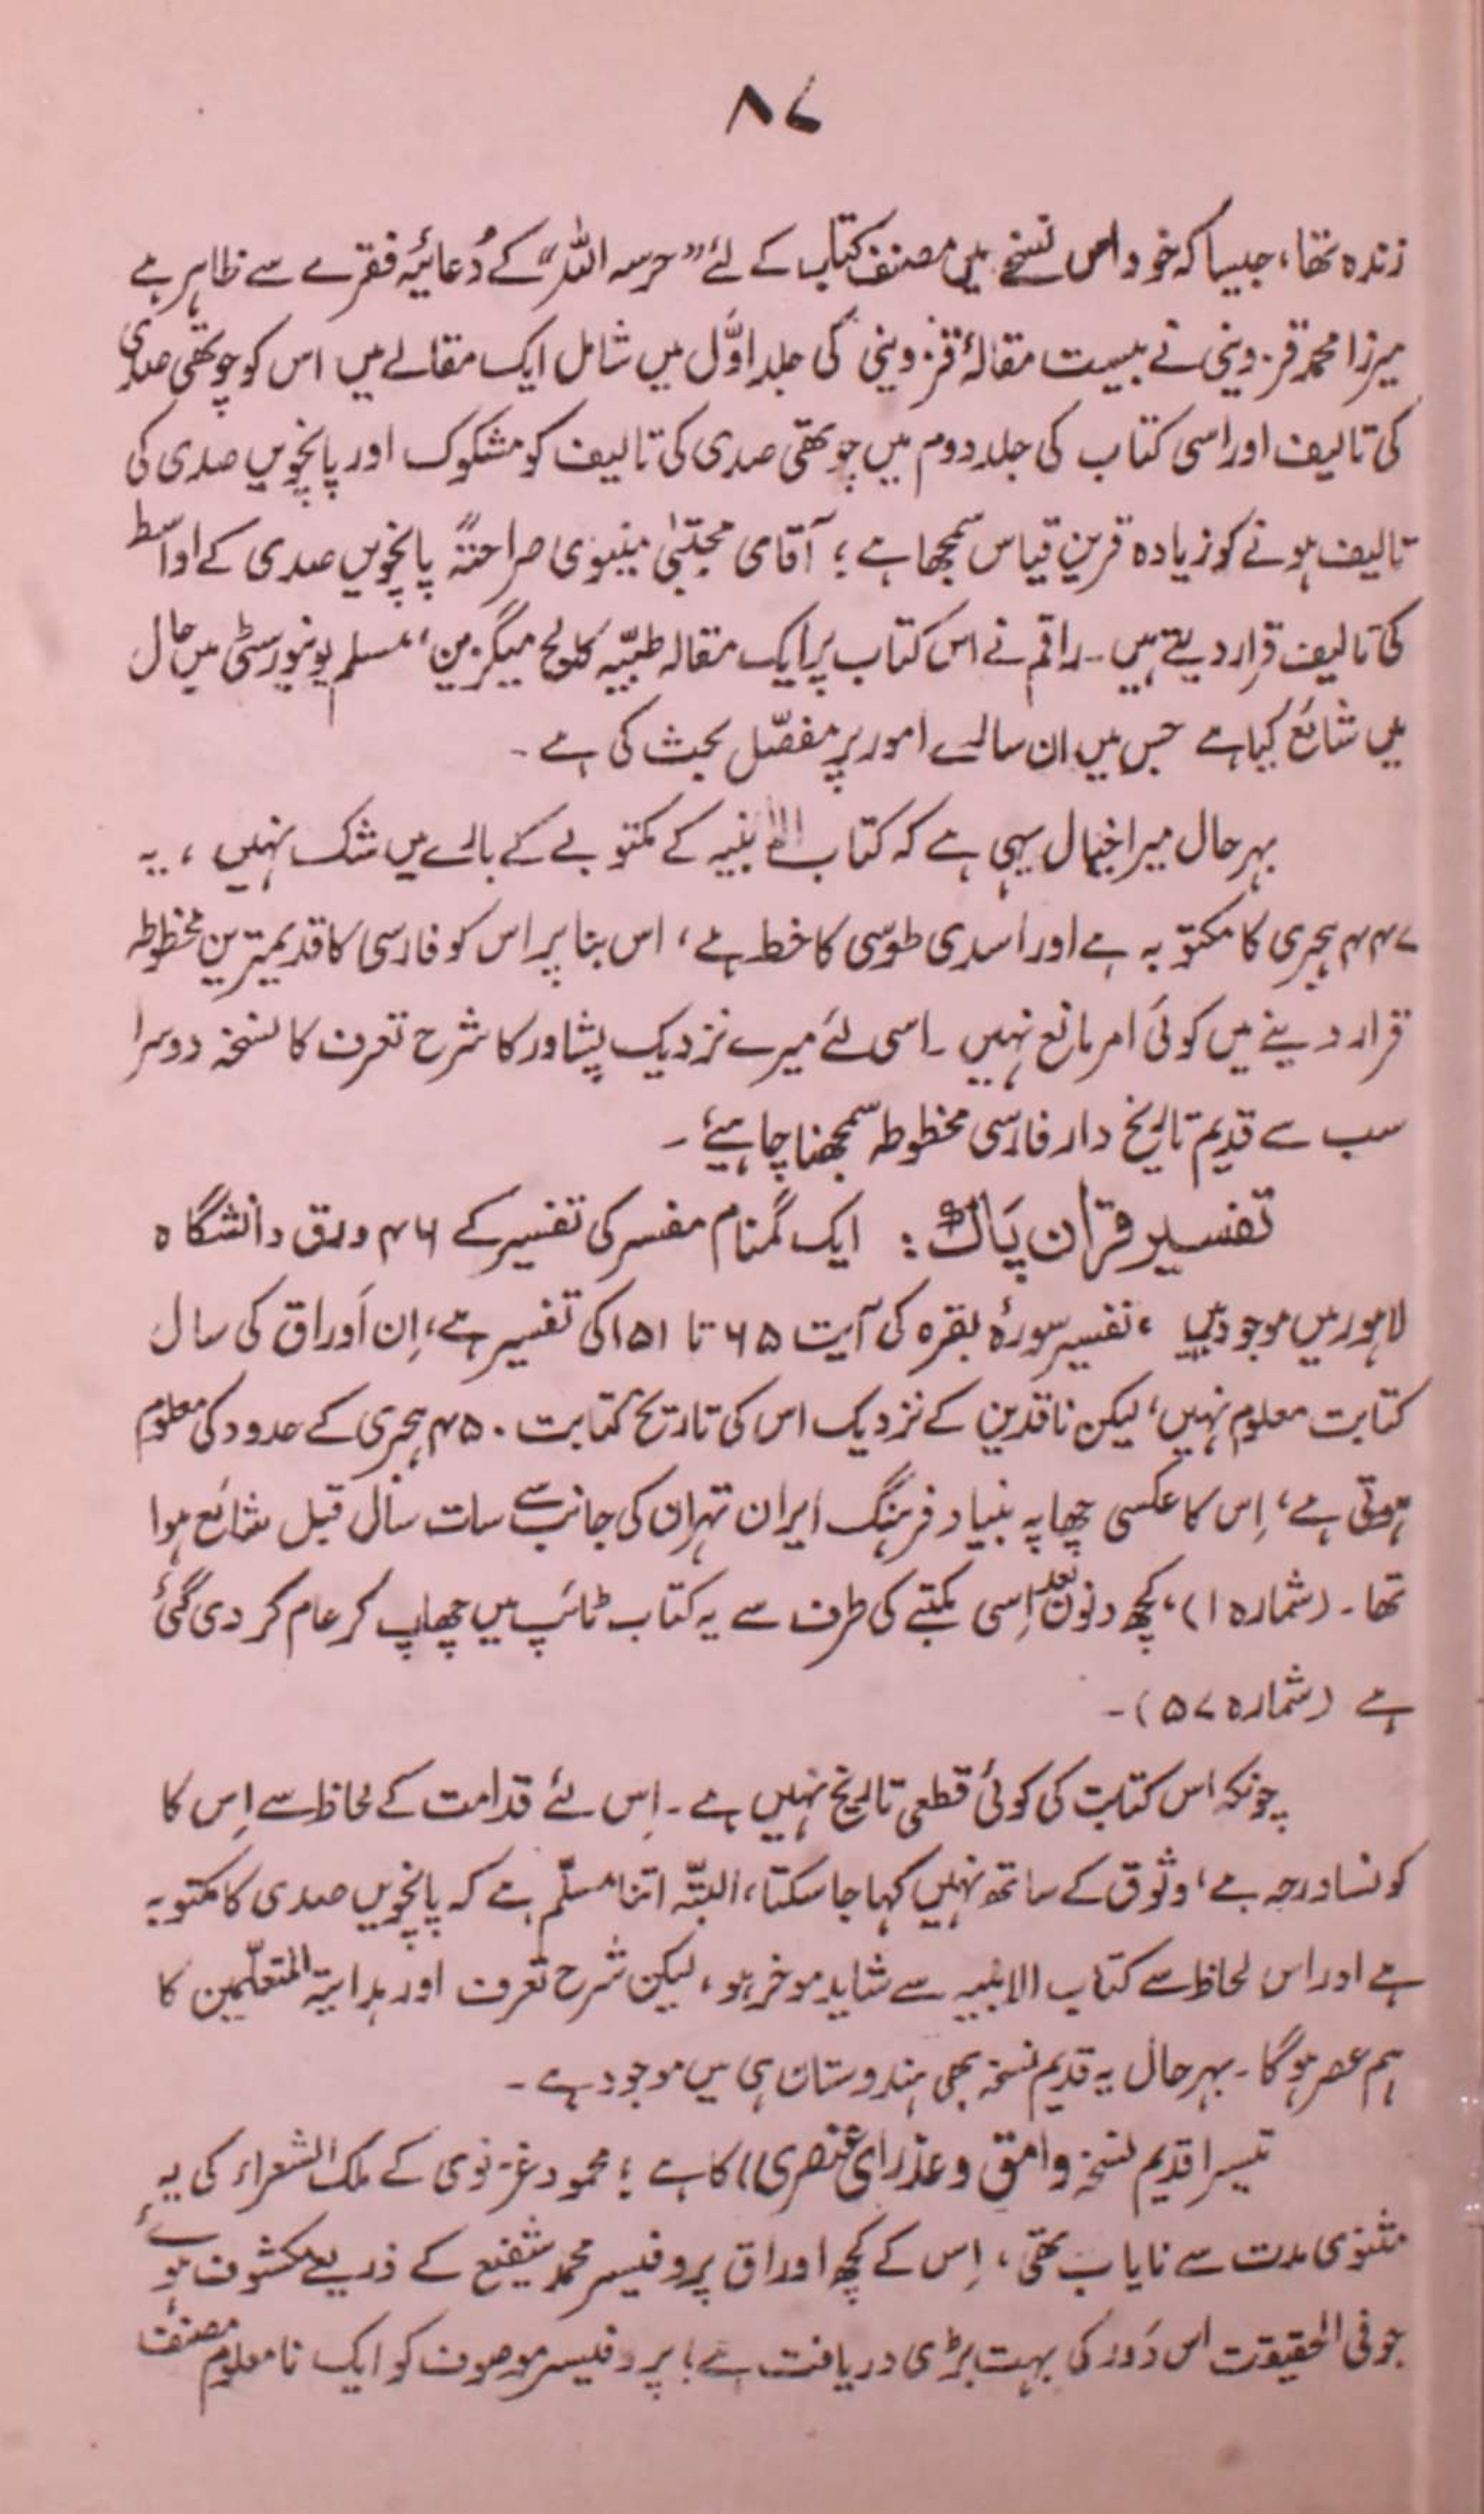 ۸۷
زندہ تھا، جیسا کہ خود اس نسخے میں مصنف کتاب کے لئے "حرسہ اللہ" کے دُعائیہ فقرے سے ظاہر ہے
میرزا محمد قزوینی نے بیست مقالۂ قزوینی کی جلد اوّل میں شامل ایک مقالے میں اس کو چوتھی صدی
کی تالیف اور اسی کتاب کی جلد دوم میں چوتھی صدی کی تالیف کو مشکوک اور پانچویں صدی کی
تالیف ہونے کو زیادہ قرین قیاس سمجھا ہے؛ آقای مجتبیٰ مینوی صراحتہً پانچویں صدی کے اواسط
کی تالیف قرار دیتے ہیں۔ راقم نے اس کتاب پر ایک مقالہ طبیّہ کالج میگزین، مسلم یونیورسٹی میں حال
میں شائع کیا ہے جس میں ان سارے امور پر مفصّل بحث کی ہے۔
بہر حال میرا خیال یہی ہے کہ کتاب الابنیہ کے مکتوبے کے بارے میں شک نہیں، یہ
۴۴۷ ہجری کا مکتوبہ ہے اور اسدی طوسی کا خط ہے، اس بنا پر اس کو فارسی کا قدیمترین مخطوطہ
قرار دینے میں کوئی امر مانع نہیں۔ اسی لئے میرے نزدیک پشاور کا شرح تعرف کا نسخہ دوسرا
سب سے قدیم تاریخ دار فارسی مخطوطہ سمجھنا چاہیئے۔
تفسیر قرآن پاک: ایک گمنام مفسر کی تفسیر کے ۴۶ ورق دانشگاہ
لاہور میں موجود ہیں، تفسیر سورۂ بقرہ کی آیت ۶۵ تا ۱۵۱ کی تفسیر ہے، اِن اَوراق کی سال
کتابت معلوم نہیں، لیکن ناقدین کے نزدیک اس کی تاریخ کتابت ۴۵۰ ہجری کے حدود کی معلوم
ہوتی ہے، اِس کا عکسی چھاپہ بنیاد فرہنگ ایران تہران کی جانب سے سات سال قبل شائع ہوا
تھا۔ (شمارہ ۱)، کچھ دنوں بعد اِسی مکتبے کی طرف سے یہ کتاب ٹائپ میں چھاپ کر عام کر دی گئی
ہے (شمارہ ۵۷)۔
چونکہ اس کتابت کی کوئی قطعی تاریخ نہیں ہے۔ اِس لئے قدامت کے لحاظ سے اِس کا
کونسا درجہ ہے، وثوق کے ساتھ نہیں کہا جا سکتا، البتّہ اتنا مسلّم ہے کہ پانچویں صدی کا مکتوبہ
ہے اور اس لحاظ سے کتاب الابنیہ سے شاید موخر ہو، لیکن شرح تعرف اور ہدایتہ المتعلّمین کا
ہم عصر ہوگا۔ بہر حال یہ قدیم نسخہ بھی ہندوستان ہی میں موجود ہے۔
تیسرا قدیم نسخہ وامق و عذرای عنصری)) کا ہے؛ محمود غزنوی کے ملک الشعراء کی یہ
مثنوی مدت سے نایاب تھی، اِس کے کچھ اوراق پروفیسر محمد شفیع کے ذریعے مکشوف ہوئے
جو فی الحقیقت اس دَور کی بہت بڑی دریافت ہے؛ پروفیسر موصوف کو ایک نا معلوم مصنف